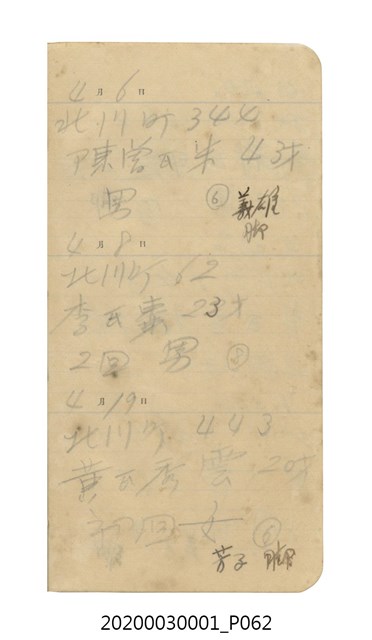 4月6日
北川町 344
陳曾氏朱 43才
男 ⑥ 義雄
4月8日
北川町 62
李氏 23才
2回 男 ⑧
4月19日
北川町 443
黃氏秀雲 20才
初回女 ⑥
芳子
20200030001_P062